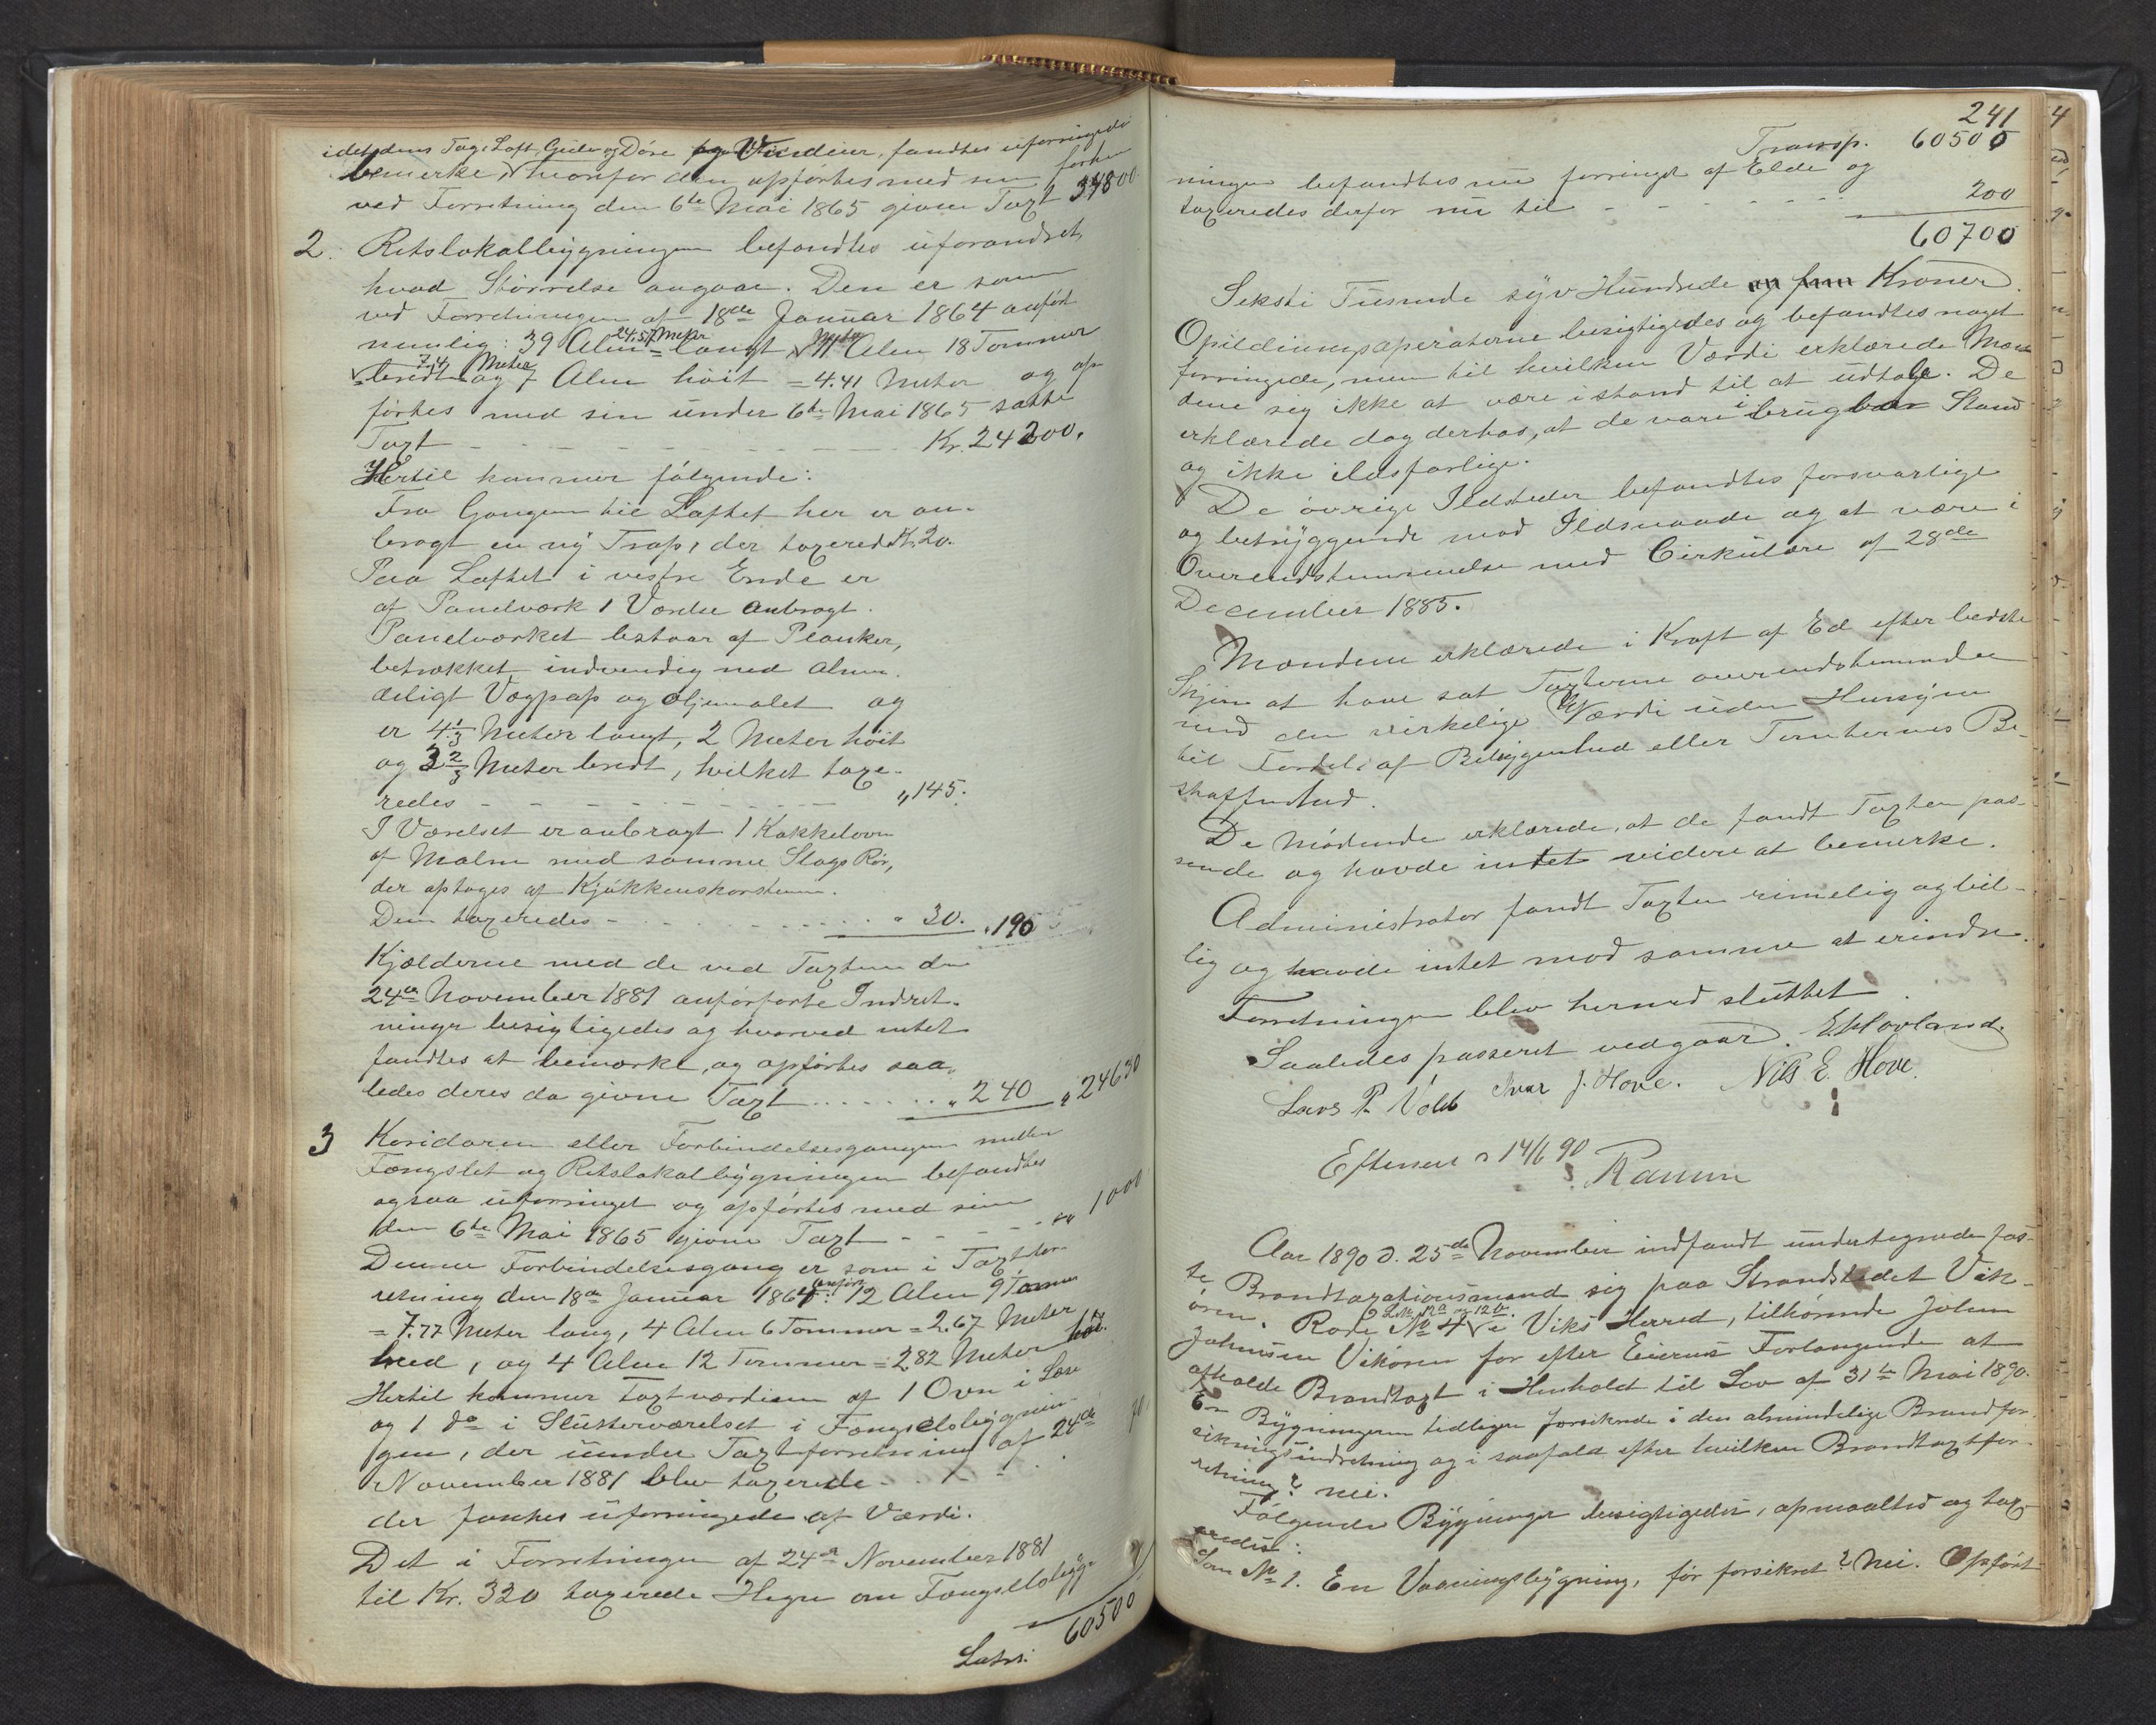 idetdens Tag, Loft, Gulv og Døre og Vinduer, fandtes uforringede
bemerke hvorfor den opførtes med sin forhen
ved Forretning den 6te Mai 1865 givne Taxt 34800.
2. Retslokalbygningen befandtes uforandret,
hvad Størrelse angaar. Den er som
ved Forretningen af 18de Januar 1864 anført
nemlig: 39 Alen = 24,57 Meter langt, 11 Alen 18 Tommer
= 7,4 Meter bredt og 7 Alen høit = 4.41 Meter og op
førtes med sin under 6te Mai 1865 satte
Taxt - - - - - - - Kr. 24200.
Hertil kommer følgende:
Fra Gangen til Loftet her er an-
bragt en ny Trap, der taxered. Kr. 20.
Paa Loftet i vestre Ende er
af Panelværk 1 Værelse anbragt.
Panelværket bestaar af Planker,
betrækket indvendig med alm.
deligt Vægpap og oljemalet og
er 4 1/3 Meter langt, 2 Meter høit
og 3 2/3 Meter bredt, hvilket taxe-
redes - - - - - - - " 145.
I Værelset er anbragt 1 Kakkelovn
af Malm med samme Slags Rør,
der optages af Kjøkkenskorstenen.
Den taxeredes - - - - - " 30. " 195
Kjælderne med de ved Taxten den
24de November 1881 anførte Indret-
ninger besigtigedes og hvorved intet
fandtes at bemærke, og opførtes saa-
ledes deres da givne Taxt . . . . . " 240 " 24630
3 Koridoren eller Forbindelsesgangen mellem
Fængslet og Retslokalbygningen befandtes
ogsaa uforringet og opførtes med sin
den 6te Mai 1865 givne Taxt - - - - " 1000
Denne Forbindelsesgang er som i Taxtfor-
retning den 18de Januar 1864 anført: 12 Alen 9 Tommer
= 7.77 Meter lang, 4 Alen 6 Tommer = 2.67 Meter
bred, og 4 Alen 12 Tommer = 2,82 Meter høi.
Hertil kommer Taxtværdien af 1 Ovn i
og 1 do i Slutterværelset i Fængselsbygnin-
gen, der under Taxtforretning af 24de
November 1881 blev taxerede - - - - 70
der fandtes uforringede af Værdi.
Det i Forretningen af 24de November 1881
til Kr. 320 taxerede Hegn om Fængselsbyg-
Latus: 60500
241
Transp. 60500
ningen befandtes nu forringet af Elde og
taxeredes derfor nu til - - - - - - 200
60700
Seksti Tusunde syv Hundrede Kroner.
Opildningsaperaterne besigtigedes og befandtes noget
forringede, men til hvilken Værdi erklærede Mæn-
dene sig ikke at være istand til at udtale. De
erklærede dog derhos, at de vare i brugbar Stand
og ikke ildsfarlige.
De øvrige Ildsteder befandtes forsvarlige
og betryggende mod Ildsvaade og at være i
Overensstemmelse med Cirkulære af 28de
December 1885.
Mændene erklærede i Kraft af Ed efter bedste
Skjøn at have sat Taxterne overensstemmende
med den virkelige Værdi uden Hensyn
til Fordel af Beliggenhed eller Tomternes Be-
skaffenhed.
De Mødende erklærede, at de fandt Taxten pas-
sende og havde intet videre at bemerke.
Administrator fandt Taxten rimelig og bil-
lig og havde intet mod samme at erindre.
Forretningen blev hermed sluttet
Saaledes passeret vedgaar. E Hovland.
Lars P. Vold Ivar J. Hove. Nils E. Hove.
Efterseet 14/6 90
Ramm
Aar 1890 d. 25de November indfandt undertegnede fas-
te Brandtaxationsmænd sig paa Strandstedet Vik-
øren, Rode No 4, L.No 12a og 12b. i Viks Herred, tilhørende Johan
Johnsen Vikøren for efter Eierens Forlangende at
afholde Brandtaxt i Henhold til Lov af 31te Mai 1890.
Er Bygningerne tidligere forsikrede i den almindelige Brandfor-
sikringsindretning og i saafald efter hvilken Brandtaxtfor-
retning? nei.
Følgende Bygninger besigtigedes, opmaaltes og tax-
eredes:
Som No 1. En Vaaningsbygning, før forsikret? Nei. Opført